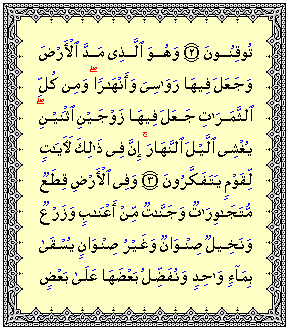 تُوقِنُونَ ﴿٢﴾ وَهُوَ ٱلَّذِى مَدَّ ٱلْأَرْضَ
وَجَعَلَ فِيهَا رَوَٰسِىَ وَأَنْهَـٰرًا ۖ وَمِن كُلِّ
ٱلثَّمَرَٰتِ جَعَلَ فِيهَا زَوْجَيْنِ ٱثْنَيْنِ ۖ
يُغْشِى ٱلَّيْلَ ٱلنَّهَارَ ۚ إِنَّ فِى ذَٰلِكَ لَـَٔايَـٰتٍ
لِّقَوْمٍ يَتَفَكَّرُونَ ﴿٣﴾ وَفِى ٱلْأَرْضِ قِطَعٌ
مُّتَجَـٰوِرَٰتٌ وَجَنَّـٰتٌ مِّنْ أَعْنَـٰبٍ وَزَرْعٌ
وَنَخِيلٌ صِنْوَانٌ وَغَيْرُ صِنْوَانٍ يُسْقَىٰ
بِمَآءٍ وَٰحِدٍ وَنُفَضِّلُ بَعْضَهَا عَلَىٰ بَعْضٍ